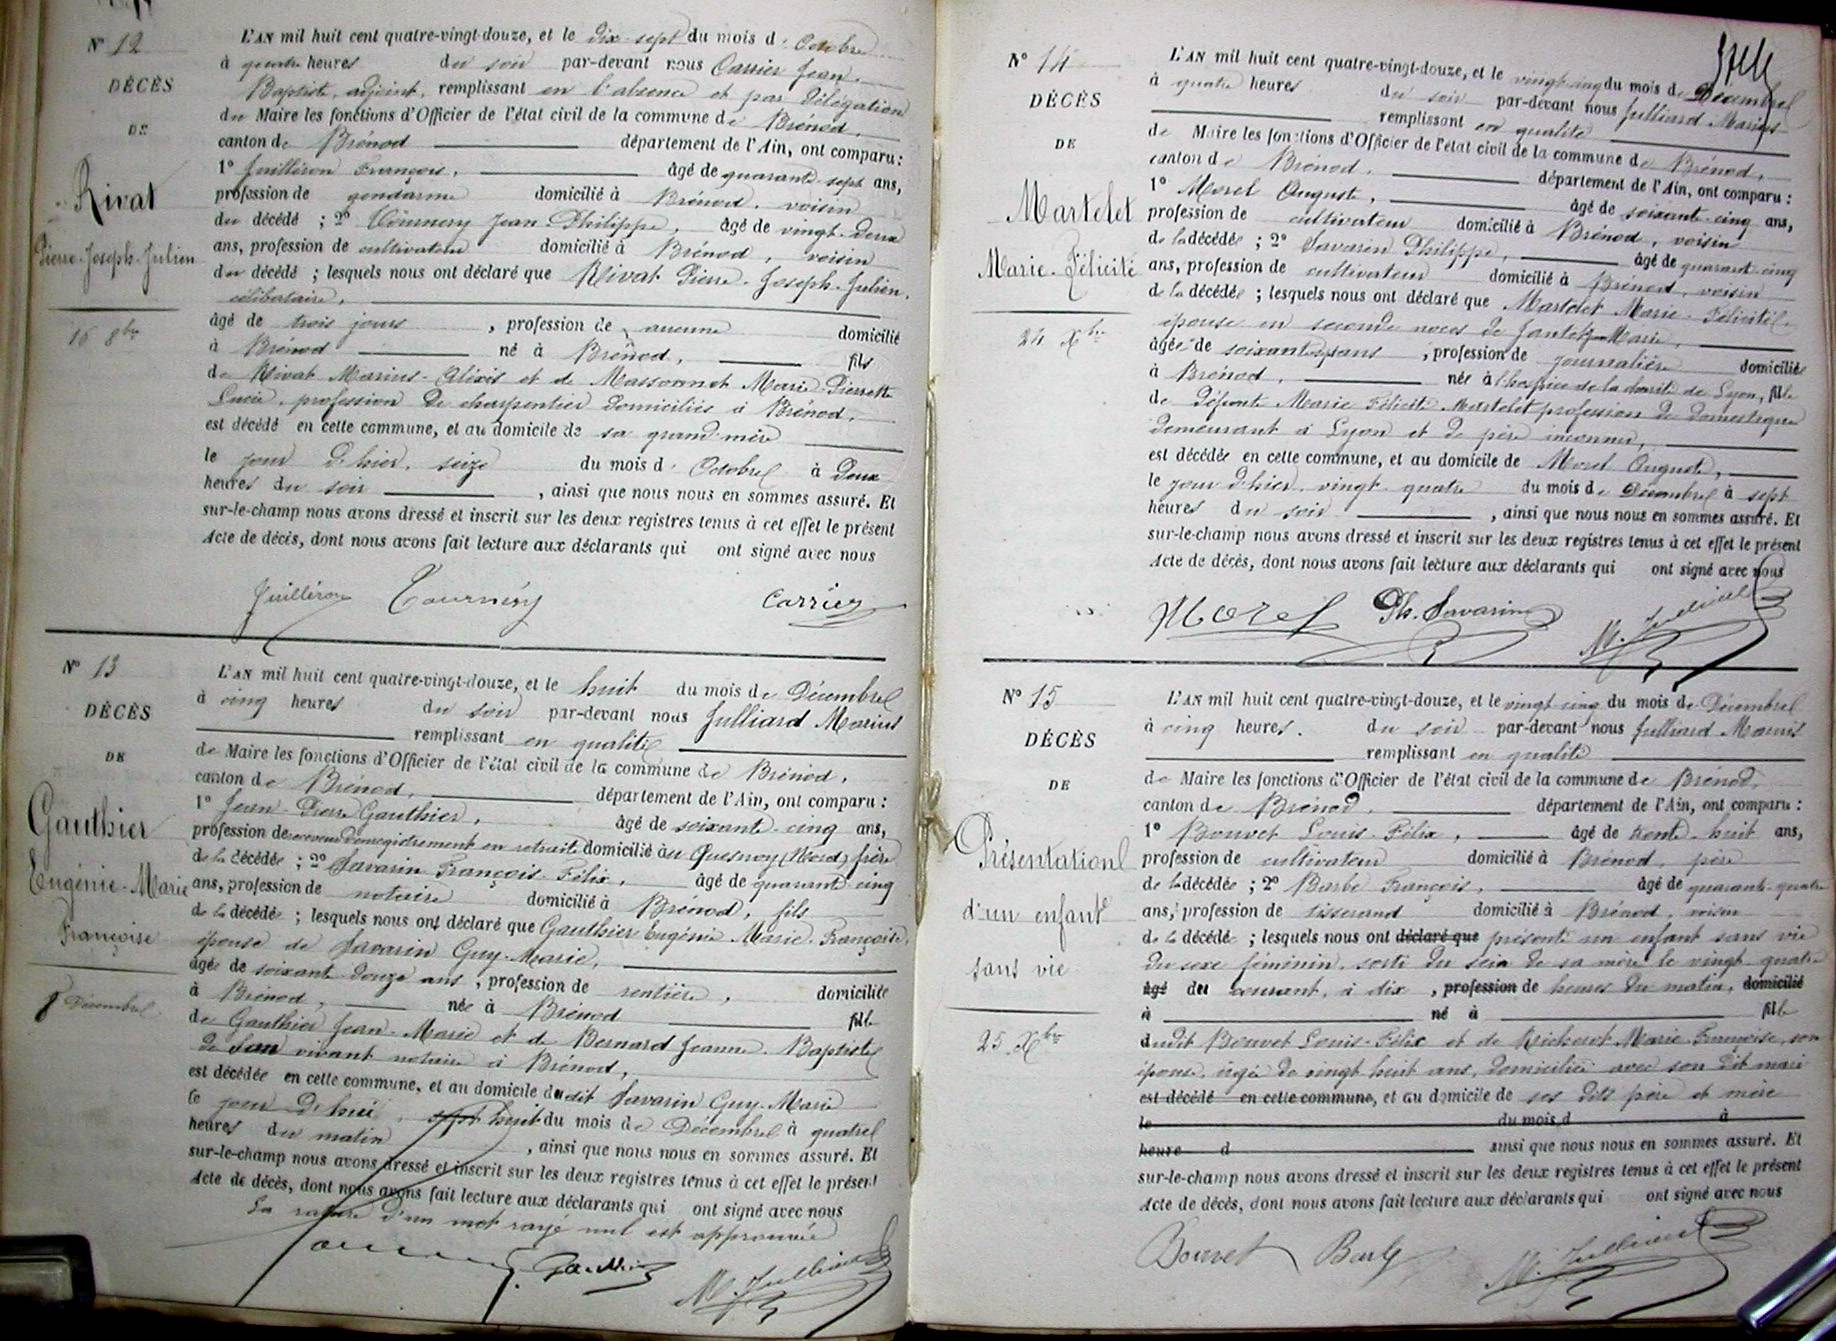 N° 12
DÉCÈS
DE
Rivat
Pierre-Joseph-Julien
16 8bre
L'AN mil huit cent quatre-vingt-douze, et le dix-sept du mois d'Octobre
à quatre heures du soir par-devant nous Carrier Jean-
Baptiste, adjoint, remplissant en l'absence et par délégation
du Maire les fonctions d'Officier de l'état civil de la commune de Brénod,
canton de Brénod département de l'Ain, ont comparu :
1° Juilléron François, âgé de quarante-sept ans,
profession de gendarme domicilié à Brénod, voisin
du décédé ; 2° Tournery Jean Philippe, âgé de vingt-deux
ans, profession de cultivateur domicilié à Brénod, voisin
du décédé ; lesquels nous ont déclaré que Rivat Pierre-Joseph-Julien,
célibataire,
âgé de trois jours, profession de aucune domicilié
à Brénod né à Brénod, fils
de Rivat Marius-Alexis et de Massonnet Marie Pierrette
Lucie, profession de charpentier domiciliés à Brénod,
est décédé en cette commune, et au domicile de sa grand-mère
le jour d'hier, seize du mois d'Octobre à deux
heures du soir, ainsi que nous nous en sommes assuré. Et
sur-le-champ nous avons dressé et inscrit sur les deux registres tenus à cet effet le présent
Acte de décès, dont nous avons fait lecture aux déclarants qui ont signé avec nous
Juilléron Tournery Carrier
N° 13
DÉCÈS
DE
Gauthier
Eugénie-Marie
Françoise
8 Décembre
L'AN mil huit cent quatre-vingt-douze, et le huit du mois de Décembre
à cinq heures du soir par-devant nous Julliard Marius
remplissant en qualité
de Maire les fonctions d'Officier de l'état civil de la commune de Brénod,
canton de Brénod, département de l'Ain, ont comparu :
1° Jean-Pierre Gauthier, âgé de soixante-cinq ans,
profession de receveur d'enregistrement en retraite domicilié à au Quesnoy (Nord) frère
de la décédée ; 2° Savarin François-Félix, âgé de quarante cinq
ans, profession de notaire domicilié à Brénod, fils
de la décédée ; lesquels nous ont déclaré que Gauthier Eugénie Marie-Françoise,
épouse de Savarin Guy-Marie,
âgée de soixante-douze ans, profession de rentière, domiciliée
à Brénod, née à Brénod fille
de Gauthier Jean-Marie et de Bernard Jeanne-Baptiste
de son vivant notaire à Brénod,
est décédée en cette commune, et au domicile du dit Savarin Guy-Marie
le jour d'hui, sept huit du mois de Décembre à quatre
heures du matin, ainsi que nous nous en sommes assuré. Et
sur-le-champ nous avons dressé et inscrit sur les deux registres tenus à cet effet le présent
Acte de décès, dont nous avons fait lecture aux déclarants qui ont signé avec nous
La rature d'un mot rayé nul est approuvée
Gauthier M. Julliard
N° 14
DÉCÈS
DE
Martelet
Marie-Félicité
24 Xbre
L'AN mil huit cent quatre-vingt-douze, et le vingt cinq du mois de Décembre
à quatre heures du soir par-devant nous Julliard Marius
remplissant en qualité
de Maire les fonctions d'Officier de l'état civil de la commune de Brénod,
canton de Brénod, département de l'Ain, ont comparu :
1° Morel Auguste, âgé de soixante-cinq ans,
profession de cultivateur domicilié à Brénod, voisin
de la décédée ; 2° Savarin Philippe, âgé de quarante-cinq
ans, profession de cultivateur domicilié à Brénod, voisin
de la décédée ; lesquels nous ont déclaré que Martelet Marie-Félicité
épouse en seconde noces de Marie,
âgée de ans, profession de journalière domiciliée
à Brénod, née à l'hospice de la charité de Lyon, fille
de défunte Marie Félicité Martelet profession de domestique
demeurant à Lyon et de père inconnu,
est décédée en cette commune, et au domicile de Morel Auguste,
le jour d'hier, vingt-quatre du mois de Décembre à sept
heures du soir, ainsi que nous nous en sommes assuré. Et
sur-le-champ nous avons dressé et inscrit sur les deux registres tenus à cet effet le présent
Acte de décès, dont nous avons fait lecture aux déclarants qui ont signé avec nous
Morel Ph. Savarin M. Julliard
N° 15
DÉCÈS
DE
Présentation
d'un enfant
sans vie
25 Xbre
L'AN mil huit cent quatre-vingt-douze, et le vingt cinq du mois de Décembre
à cinq heures. du soir par-devant nous Julliard Marius
remplissant en qualité
de Maire les fonctions d'Officier de l'état civil de la commune de Brénod,
canton de Brénod département de l'Ain, ont comparu :
1° Bouvet Louis-Félix, âgé de trente-huit ans,
profession de cultivateur domicilié à Brénod, père
de la décédée ; 2° Barbe François, âgé de quarante-quatre
ans, profession de tisserand domicilié à Brénod, voisin
de la décédée ; lesquels nous ont déclaré que présenté un enfant sans vie
du sexe féminin, sorti du sein de sa mère le vingt quatre
âgé du courant, à dix, profession de heures du matin, domicilié
à né à fille
dudit Bouvet Louis-Félix et de Marie-Françoise, son
épouse, âgée de vingt huit ans, domiciliée avec son dit mari
est décédé en cette commune, et au domicile de ses dits père et mère
le du mois d à
heure d ainsi que nous nous en sommes assuré. Et
sur-le-champ nous avons dressé et inscrit sur les deux registres tenus à cet effet le présent
Acte de décès, dont nous avons fait lecture aux déclarants qui ont signé avec nous
Bouvet Barbe M. Julliard